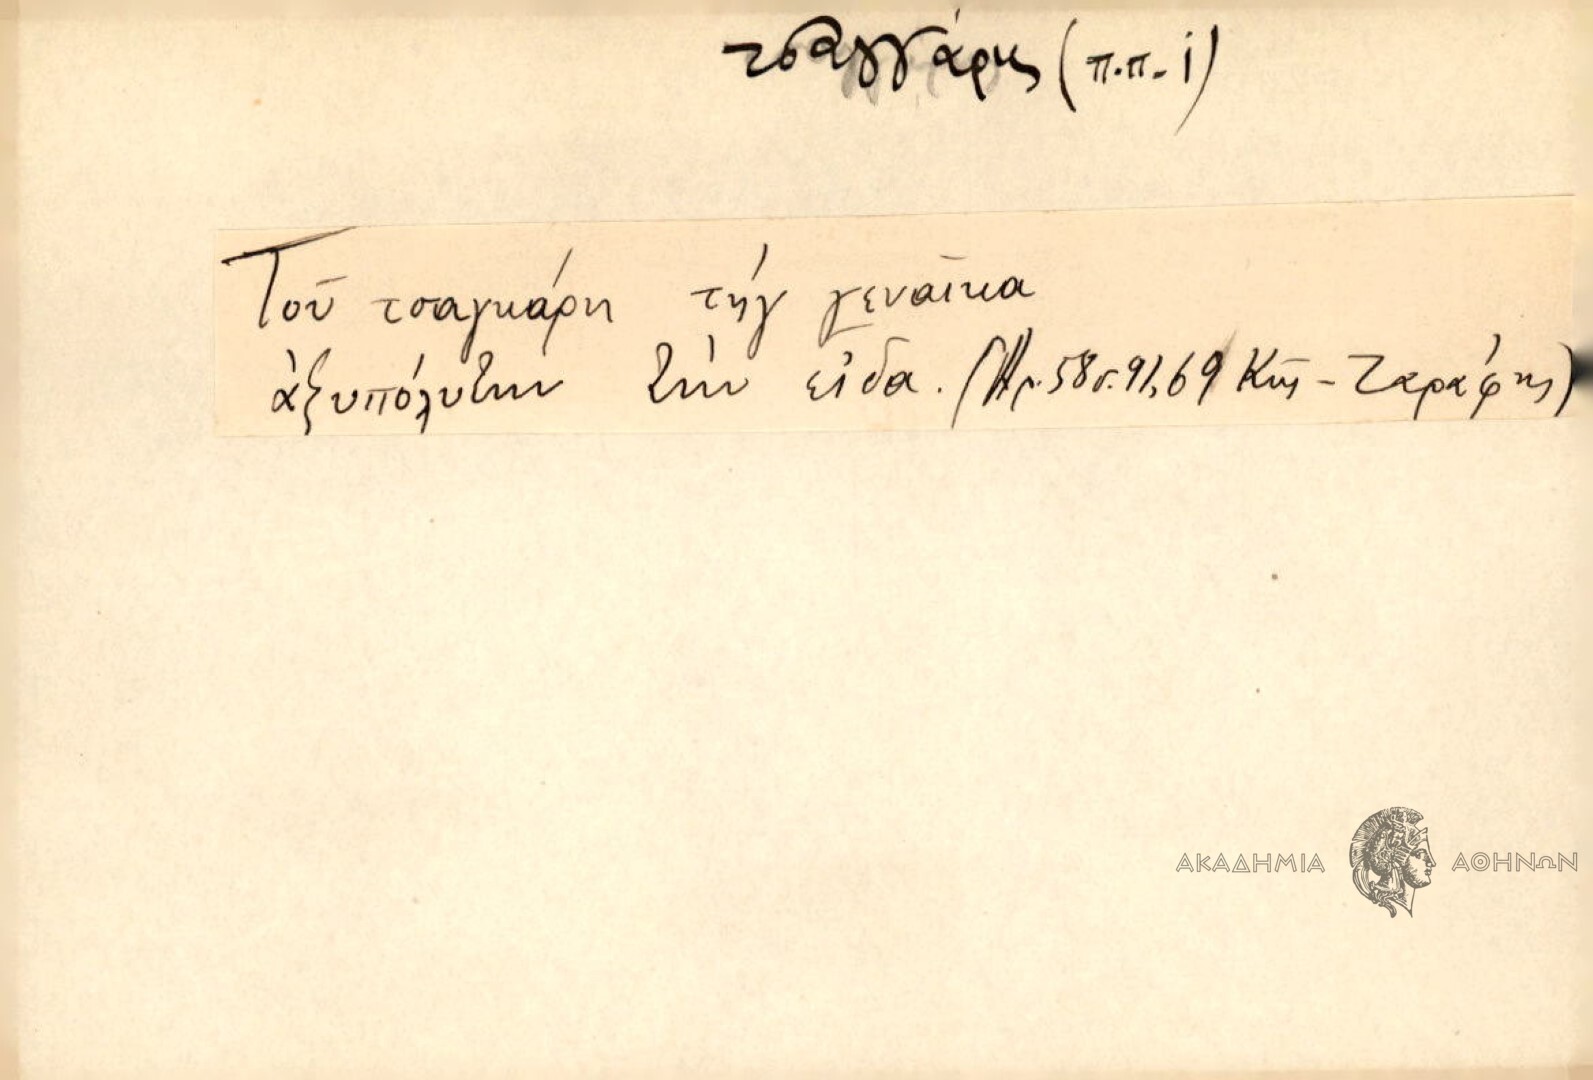 τσαγγάρης (π.π. i)
Τοῦ τσαγκάρη τήγ γεναῖκα
ἀξυπόλυτην τὴν εἶδα. (Ἀρ. 58 σ. 91, 69 Κῶς - Ζαράφτης)
ΑΚΑΔΗΜΙΑ ΑΘΗΝΩΝ